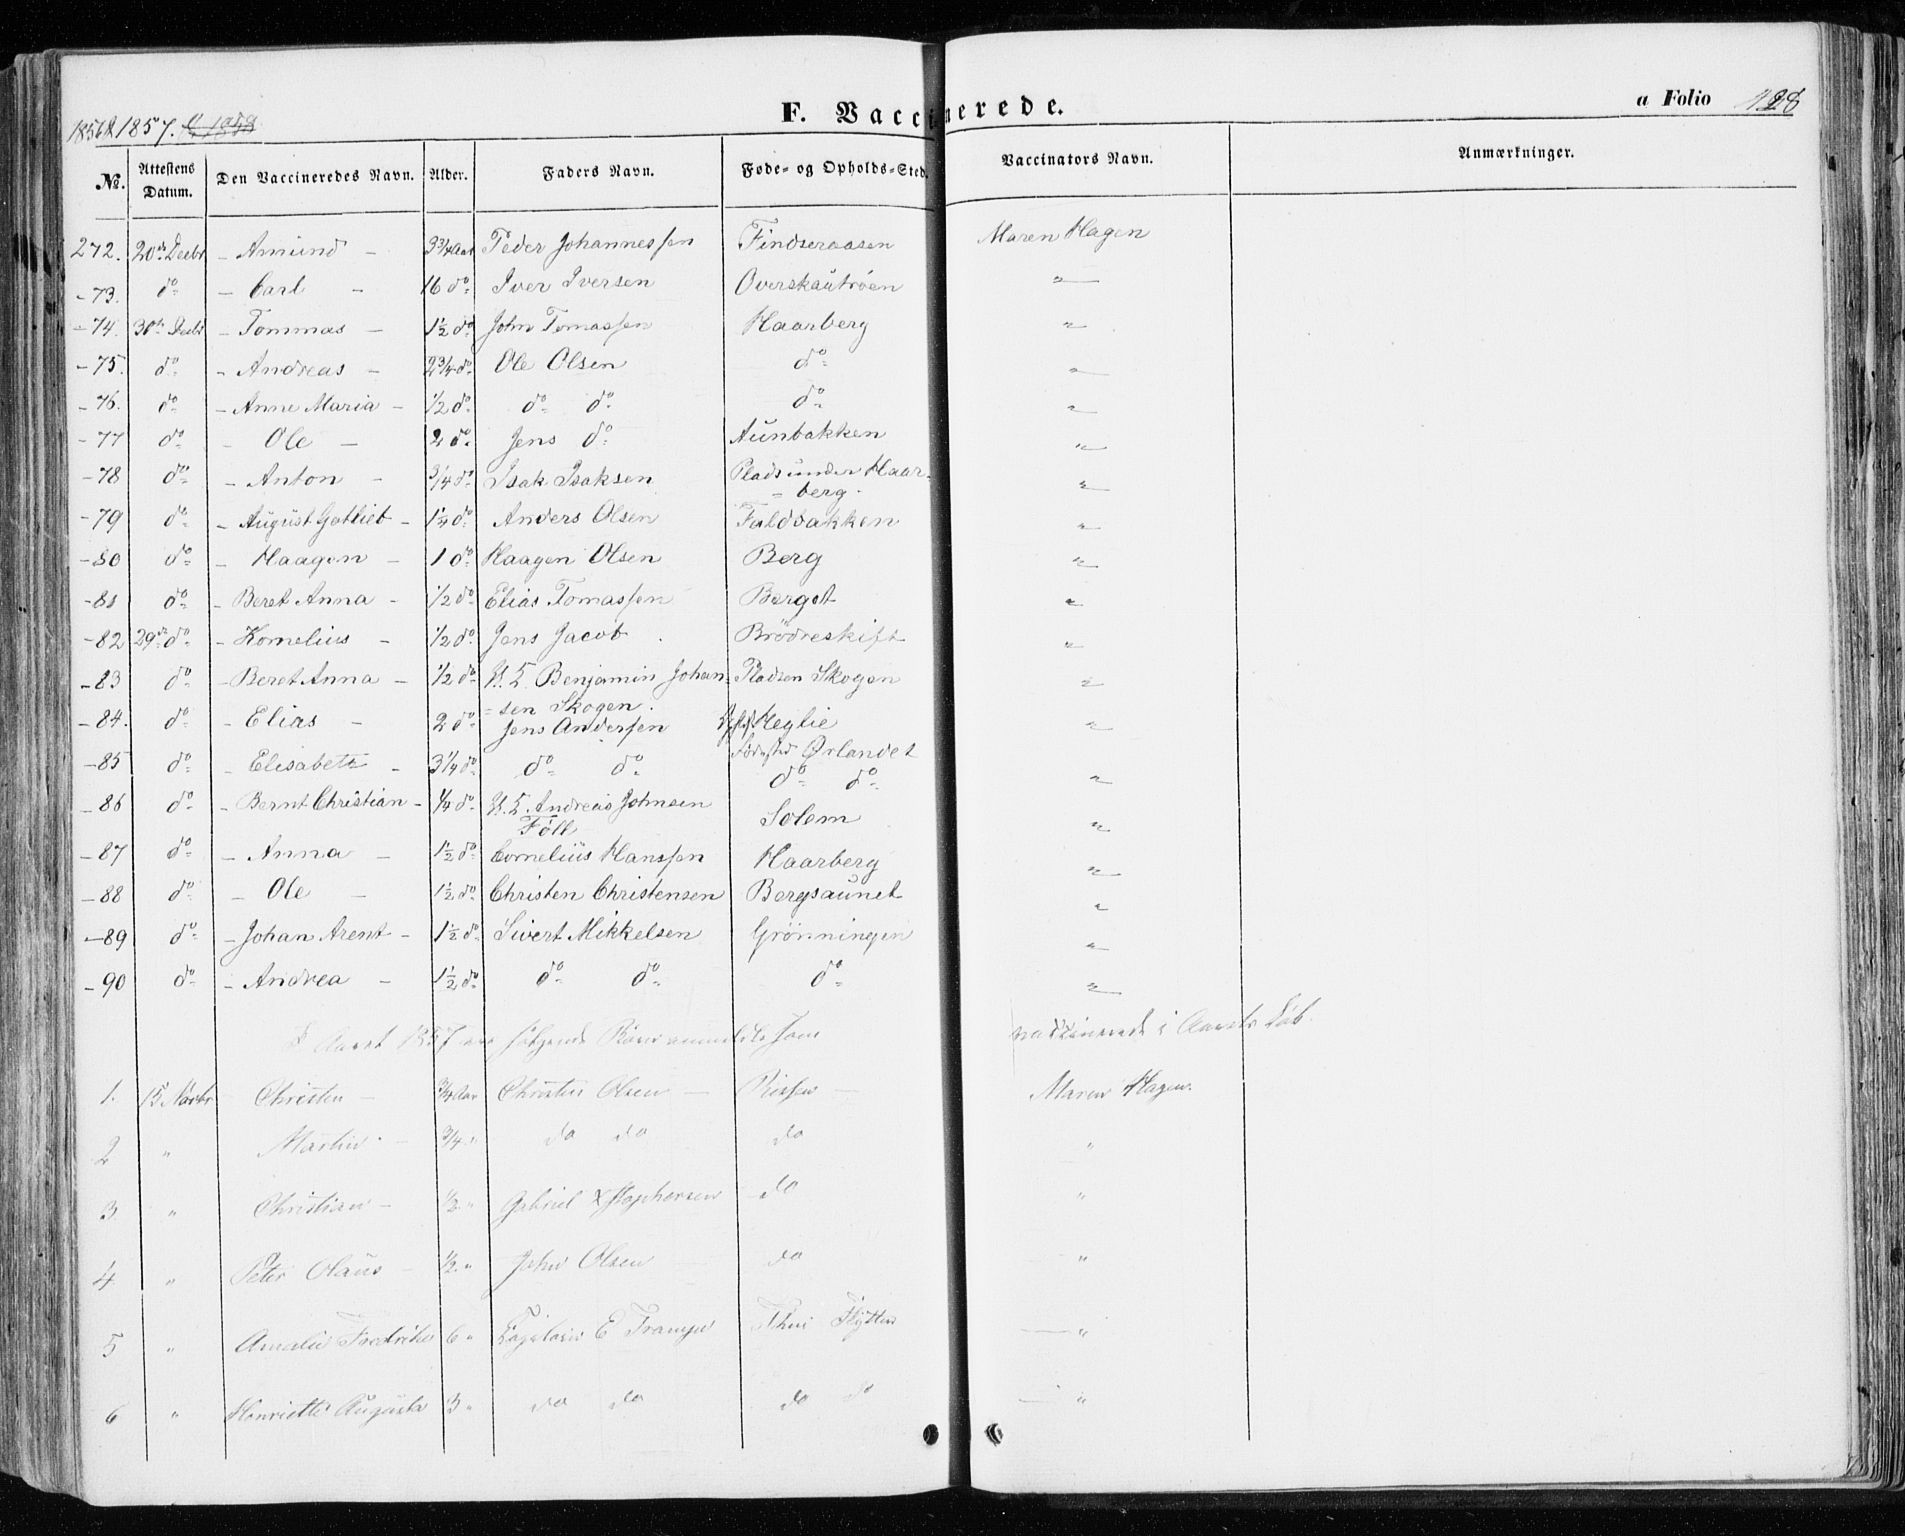 F. Vaccinerede.
a Folio 128
1856 & 1857. & 1858
No. Attestens Datum. Den Vaccineredes Navn. Alder. Faders Navn. Føde- og Opholds-Sted. Vaccinators Navn. Anmærkninger.
272. 20de Decbr - Amund - 3 3/4 Aar Peder Johannessen Findseraasen Maren Hagen
- 73. do - Carl - 16 do Iver Iversen Overskautrøen "
- 74. 30te Decbr - Tommas - 1 1/2 do John Tomassen Haarberg "
- 75. do - Andreas - 2 3/4 do Ole Olsen do "
- 76. do - Anne Maria - 1/2 do do do do "
- 77 do - Ole - 2 do Jens do Aunbakken "
- 78 do - Anton - 3/4 do Isak Isaksen Plads under Haar-
= berg. "
- 79 do - August Gotlieb - 1 1/4 do Anders Olsen Faldbakken "
- 80 do - Haagen - 1 do Haagen Olsen Berg "
- 81 do - Beret Anna - 1/2 do Elias Tomassen Berget "
- 82 29de do - Kornelius - 1/2 do Jens Jacob Brödreskift "
- 83 do - Beret Anna - 1/2 do U. E. Benjamin Johan= Pladsen Skogen "
= sen Skogen.
- 84. do - Elias - 2 do Jens Andersen Heglie "
Fødested Ørlandet
- 85 do - Elisabeth - 3 1/4 do do do do do "
- 86 do - Bernt Christian - 1/4 do U. E. Andreas Johnsen Solem "
Föll
- 87 do - Anna - 1 1/2 do Cornelius Hanssen Haarberg "
- 88 do - Ole - 1 1/2 do Christen Christensen Bergsaunet "
- 89 do - Johan Arent - 1 1/2 do Sivert Mikkelsen Grönningen "
- 90 do - Andrea - 1 1/2 do do do do "
I Aaret 1857 ere følgende Børn anmeldte som vaccinerede i Aarets Løb.
1. 15 Novbr Christen - 3/4 Aar Christen Olsen - Rissen - Maren Hagen.
2 " Martin - 3/4 " do do do "
3 " Christian - 1/2 " Gabriel do "
4 " Peter Olaus - 1/2 " John Olsen do "
5 " Amalie Fredrikke 6 " "
6 " Henriette Augusta 3 " do do do do "